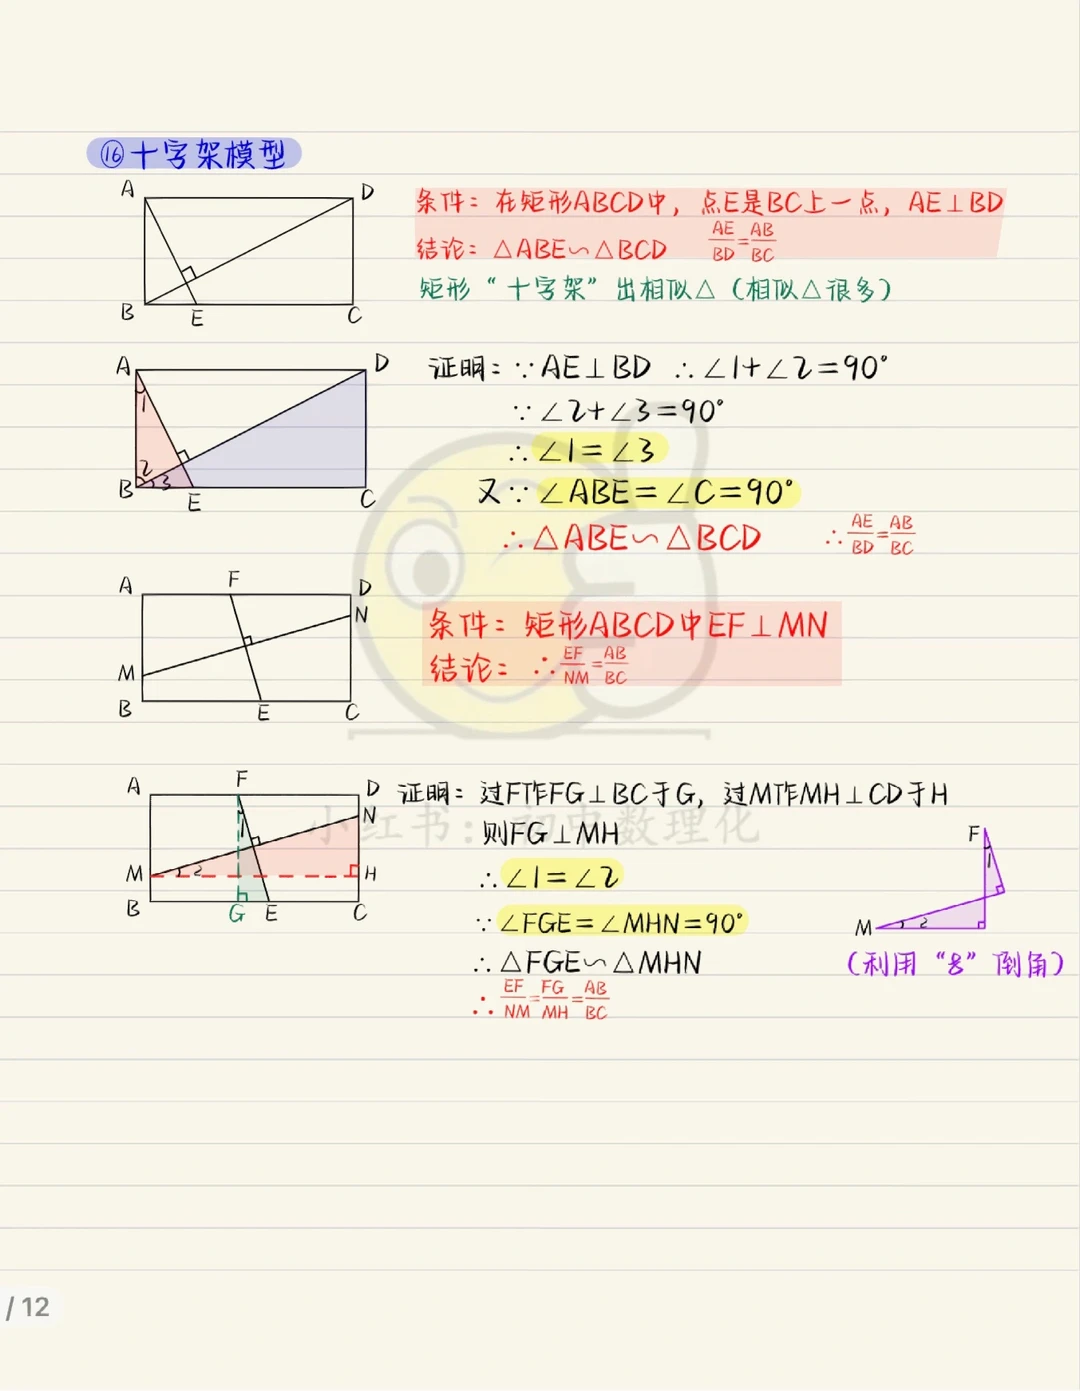 ⑯十字架模型
A D
B E C
条件：在矩形ABCD中，点E是BC上一点，AE⊥BD
结论：△ABE∽△BCD AE/BD=AB/BC
矩形“十字架”出相似△（相似△很多）
A D
1
2
3
B E C
证明：∵AE⊥BD ∴∠1+∠2=90°
∵∠2+∠3=90°
∴∠1=∠3
又∵∠ABE=∠C=90°
∴△ABE∽△BCD ∴AE/BD=AB/BC
A F D
N
M
B E C
条件：矩形ABCD中EF⊥MN
结论：∴EF/NM=AB/BC
A F D
N
1
M 2 H
B G E C
证明：过F作FG⊥BC于G，过M作MH⊥CD于H
则FG⊥MH
∴∠1=∠2
∵∠FGE=∠MHN=90°
∴△FGE∽△MHN
∴EF/NM=FG/MH=AB/BC
F
1
M 2
（利用“8”倒角）
小红书：初中数理化
/ 12